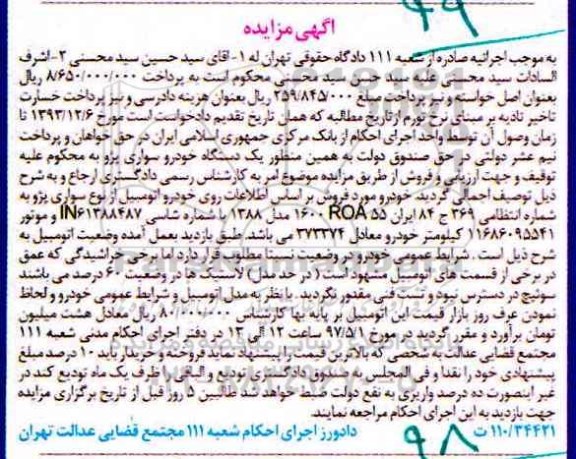 ۴۹
آگهی مزایده
به موجب اجرائیه صادره از شعبه ۱۱۱ دادگاه حقوقی تهران له ۱- آقای سید حسین سید محسنی ۲- اشرف
السادات سید محسنی علیه سید حسن سید محسنی محکوم است به پرداخت ۸/۶۵۰/۰۰۰/۰۰۰ ریال
بعنوان اصل خواسته و نیز پرداخت مبلغ ۲۵۹/۸۴۵/۰۰۰ ریال بعنوان هزینه دادرسی و نیز پرداخت خسارت
تاخیر تادیه بر مبنای نرخ تورم از تاریخ مطالبه که همان تاریخ تقدیم دادخواست است مورخ ۱۳۹۳/۱۲/۶ تا
زمان وصول آن توسط واحد اجرای احکام از بانک مرکزی جمهوری اسلامی ایران در حق خواهان و پرداخت
نیم عشر دولتی در حق صندوق دولت به همین منظور یک دستگاه خودرو سواری پژو به محکوم علیه
توقیف و جهت ارزیابی و فروش از طریق مزایده موضوع امر به کارشناس رسمی دادگستری ارجاع و به شرح
ذیل توصیف اجمالی گردید. خودرو مورد فروش بر اساس اطلاعات روی خودرو اتومبیل از نوع سواری پژو به
شماره انتظامی ۳۶۹ ج ۸۴ ایران ۵۵ ROA ۱۶۰۰ مدل ۱۳۸۸ با شماره شاسی IN۶۱۳۸۸۴۸۷ و موتور
۱۱۶۸۶۰۹۵۵۴۱ کیلومتر خودرو معادل ۳۷۳۳۷۴ می باشد. طبق بازدید بعمل آمده وضعیت اتومبیل به
شرح ذیل است. شرایط عمومی خودرو در وضعیت نسبتا مطلوب قرار دارد اما برخی خراشیدگی که عمق
در برخی از قسمت های اتومبیل مشهود است (در حد مدل) لاستیک ها در وضعیت ۶۰ درصد می باشند
سوئیچ در دسترس نبوده و تست فنی مقدور نگردید. با نظر به مدل اتومبیل و شرایط عمومی خودرو و لحاظ
نمودن عرف روز بازار قیمت این اتومبیل بر پایه بها کارشناس ۸۰/۰۰۰/۰۰۰ ریال معادل هشت میلیون
تومان برآورد و مقرر گردید در مورخ ۹۷/۵/۱ ساعت ۱۲ الی ۱۳ در دفتر اجرای احکام مدنی شعبه ۱۱۱
مجتمع قضایی عدالت به شخصی که بالاترین قیمت را پیشنهاد نماید فروخته و خریدار باید ۱۰ درصد مبلغ
پیشنهادی خود را نقدا و فی المجلس به صندوق دادگستری تودیع و الباقی را ظرف یک ماه تودیع کند در
غیر اینصورت ده درصد واریزی به نفع دولت ضبط خواهد شد طالبین ۵ روز قبل از تاریخ برگزاری مزایده
جهت بازدید به این اجرای احکام مراجعه نمایند.
۱۱۰/۳۴۴۲۱ ت دادورز اجرای احکام شعبه ۱۱۱ مجتمع قضایی عدالت تهران
۹۸